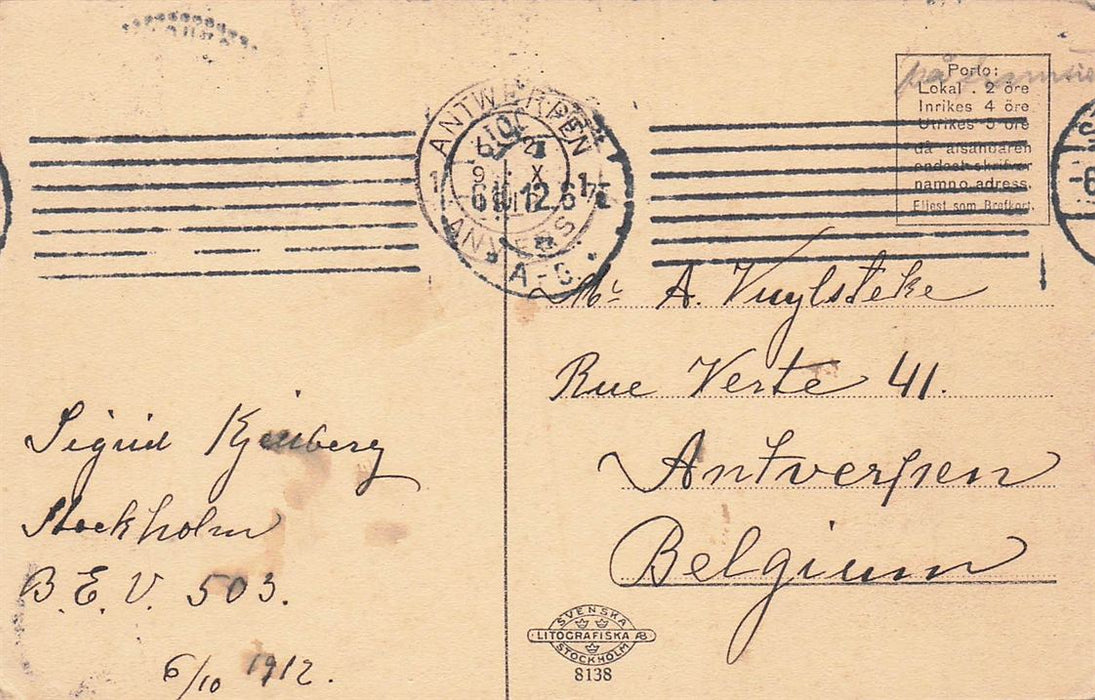 ANTWERPEN
ANVERS
6.10.12.6
A-C.
Porto:
Lokal . 2 öre
Inrikes 4 öre
Utrikes 5 öre
då afsändaren
endast skrifver
namn o. adress.
Eljest som Brefkort.
på
Mr A. Vuylsteke
Rue Verte 41.
Antverpen
Belgium
Sigrid
Stockholm
B.E.V. 503.
6/10 1912.
SVENSKA
LITOGRAFISKA AB
STOCKHOLM
8138